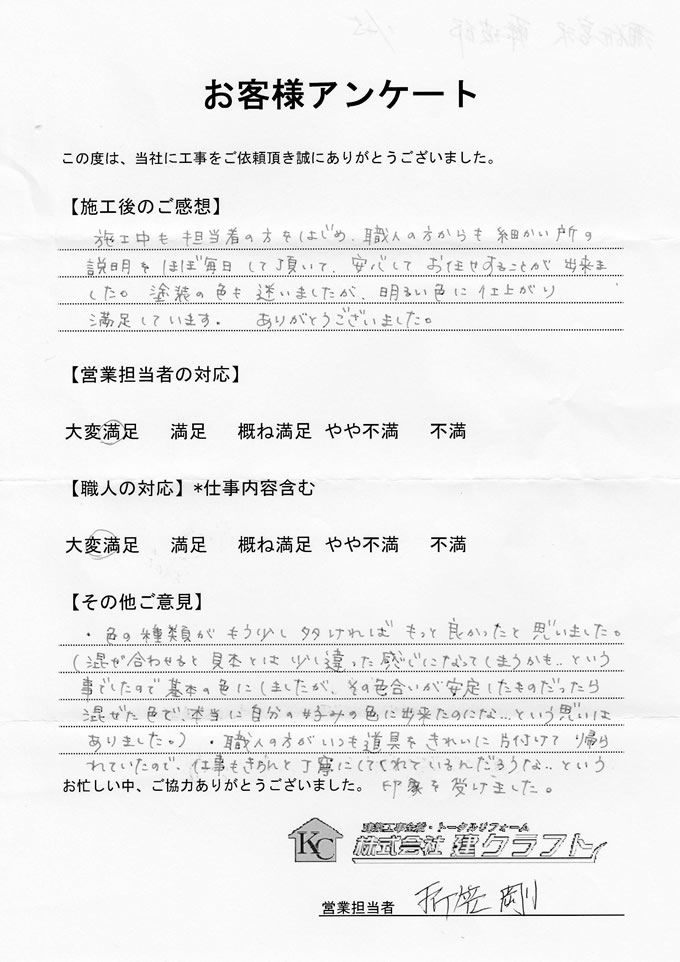 お客様アンケート
この度は、当社に工事をご依頼頂き誠にありがとうございました。
【施工後のご感想】
施工中も担当者の方をはじめ、職人の方からも細かい所の
説明をほぼ毎日して頂いて、安心してお任せすることが出来ま
した。塗装の色も迷いましたが、明るい色に仕上がり
満足しています。 ありがとうございました。
【営業担当者の対応】
大変満足 満足 概ね満足 やや不満 不満
【職人の対応】*仕事内容含む
大変満足 満足 概ね満足 やや不満 不満
【その他ご意見】
・色の種類がもう少し多ければもっと良かったと思いました。
(混ぜ合わせると見本とは少し違った感じになってしまうかも..という
事でしたので基本の色にしましたが、その色合いが安定したものだったら
混ぜた色で、本当に自分の好みの色に出来たのにな...という思いは
ありました。) ・職人の方がいつも道具をきれいに片付けて帰ら
れていたので、仕事もきちんと丁寧にしてくれているんだろうな..という
お忙しい中、ご協力ありがとうございました。 印象を受けました。
建築工事全般・トータルリフォーム
KC 株式会社 建クラフト
営業担当者 折笠 剛